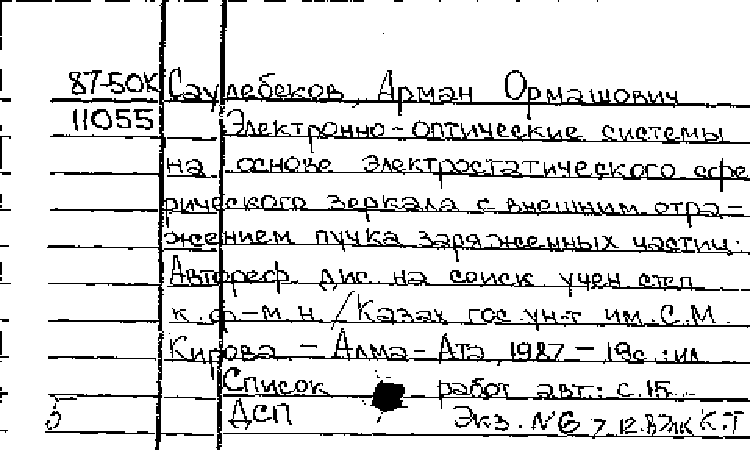 87-50К Саулебеков, Арман Ормашович
11055 Электронно-оптические системы
на основе электростатического сфе
рического зеркала с внешним отра-
жением пучка заряженных частиц:
Автореф. дис. на соиск. учен. степ.
к. ф.-м. н. / Казах. гос. ун-т им. С.М.
Кирова. - Алма-Ата, 1987. - 19с.: ил
Список работ авт.: с. 15.
ДСП Экз. №6 7.12.87 К.Т